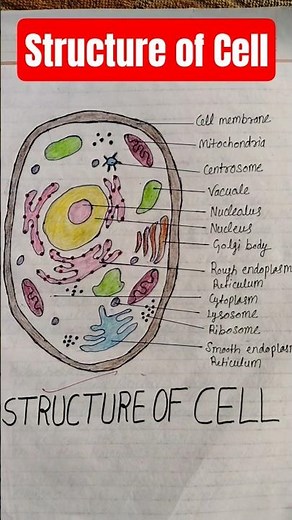 Structure of Cell
Cell membrane
Mitochondria
Centrosome
Vacuale
Nucleolus
Nucleus
Golgi body
Rough endoplasm
Reticulum
Cytoplasm
Lysosome
Ribosome
Smooth endoplasm
Reticulum
STRUCTURE OF CELL